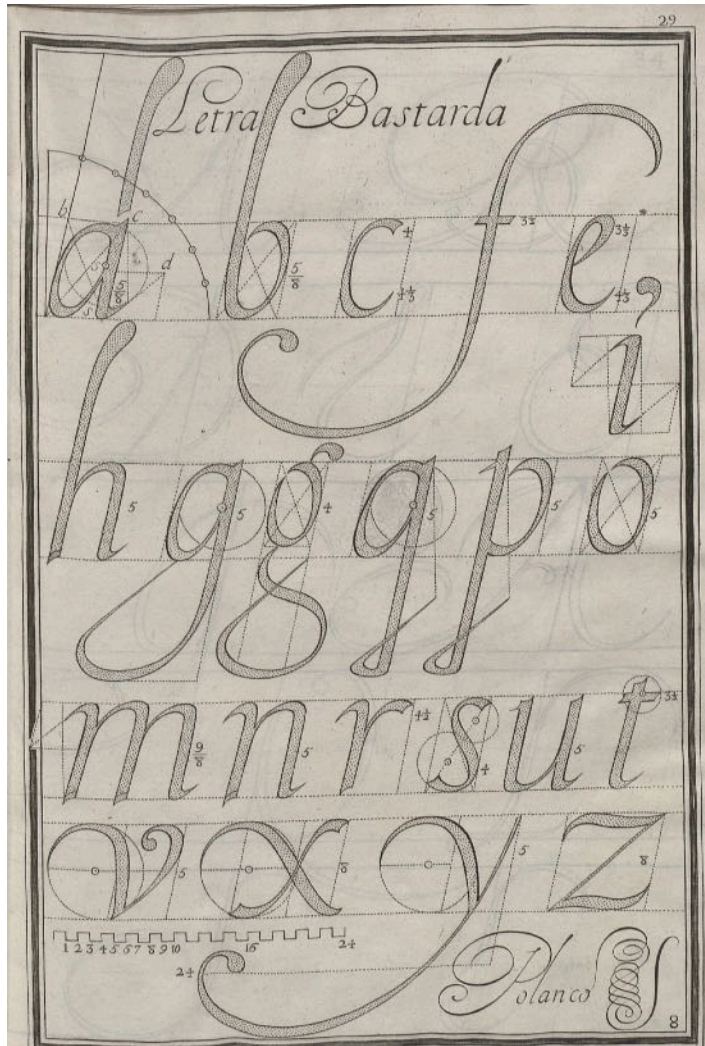 29
Letra Bastarda
b c d
a b c f e,
5 5/8 5 5/8 4 4 1/3 3 1/2 3 1/3 4 1/3
i
h g g q p o
5 5 4 5 5 5
m n r s u t
9/8 5 4 1/2 4 5 3 1/2
v x y z
5 8 5 8
1 2 3 4 5 6 7 8 9 10 16 24
24
Polanco
8